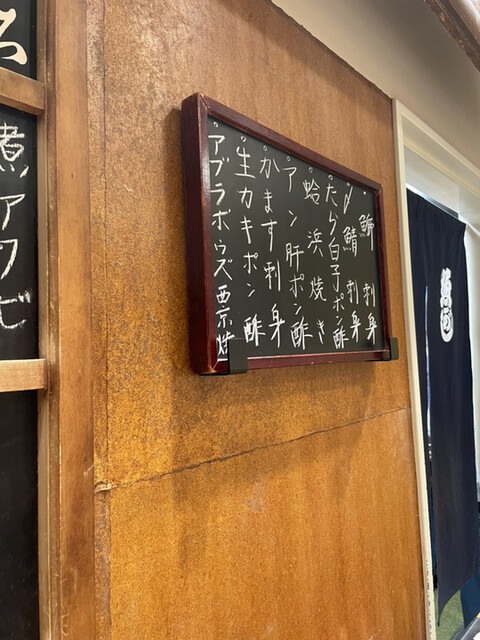 鰤刺身
〆鯖刺身
たら白子ポン酢
蛤浜焼き
アン肝ポン酢
かます刺身
生カキポン酢
アブラボウズ西京焼
煮アワビ